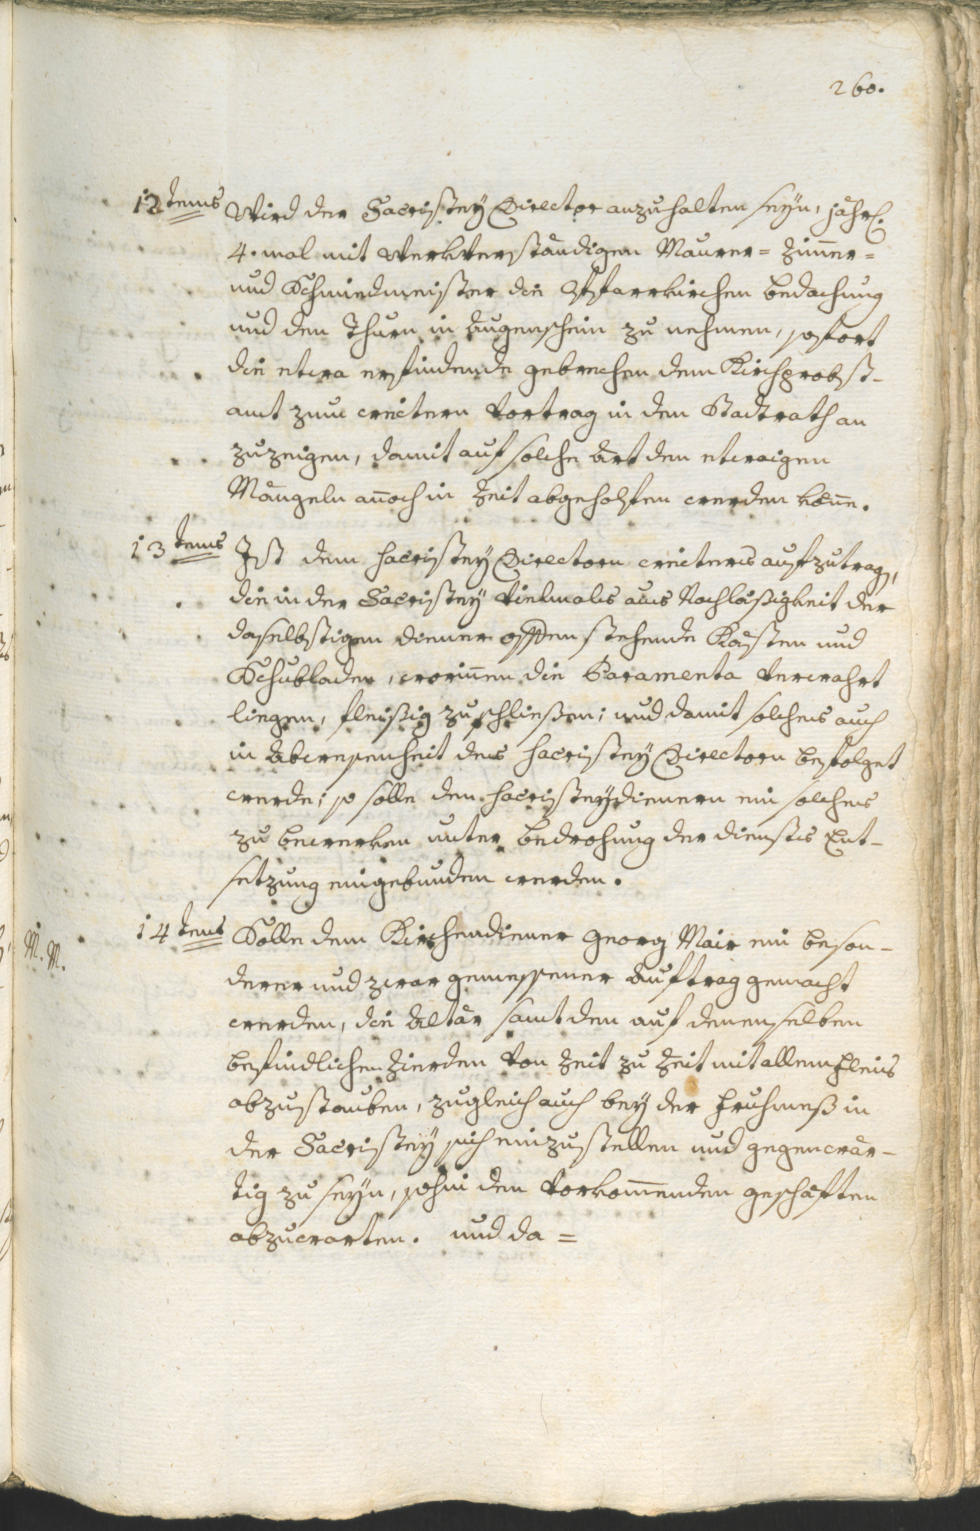 260.
12tens Wird der Sacristey Director anzuhalten seyn, jährl.
4. mal mit Werkverständigen Maurer= Zim̄er=
und Schmiedmeister die Pfarrkirchen bedachung
und den Thurn in Augenschein zu nehmen, sofort
die etwa erfindende gebrechen dem Kirchprobst-
amt zum weitern Vortrag in den Stadtrath an
zuzeigen, damit auf solche Art den etwaigen
Mängeln an̄och in Zeit abgeholfen werden kön̄e.
13tens Ist dem Sacristey Directorn weiters aufzutragen,
die in der Sacristey vielmals aus Nachläßigkeit der
daselbstigen diener offen stehende Kästen und
Schubladen, worin̄en die Paramenta verwahrt
liegen, fleißig zuschließen; und damit solches auch
in Abwesenheit des Sacristey Directorn befolget
werde; so solle den Sacristeydienern ein solches
zu bewerken unter bedrohung der dienstes Ent-
setzung eingebunden werden.
14tens Solle dem Kirchendiener Georg Mair ein beson-
derer und zwar gemessener Auftrag gemacht
M. M.
werden, die Altär samt den auf denenselben
befindlichen Zierden von Zeit zu Zeit mit allem fleis
abzustauben, zugleich auch bey der Fruhmeß in
der Sacristey sich einzustellen und gegenwär-
tig zu seyn, sohin den vorkom̄enden geschäften
abzuwarten. und da=